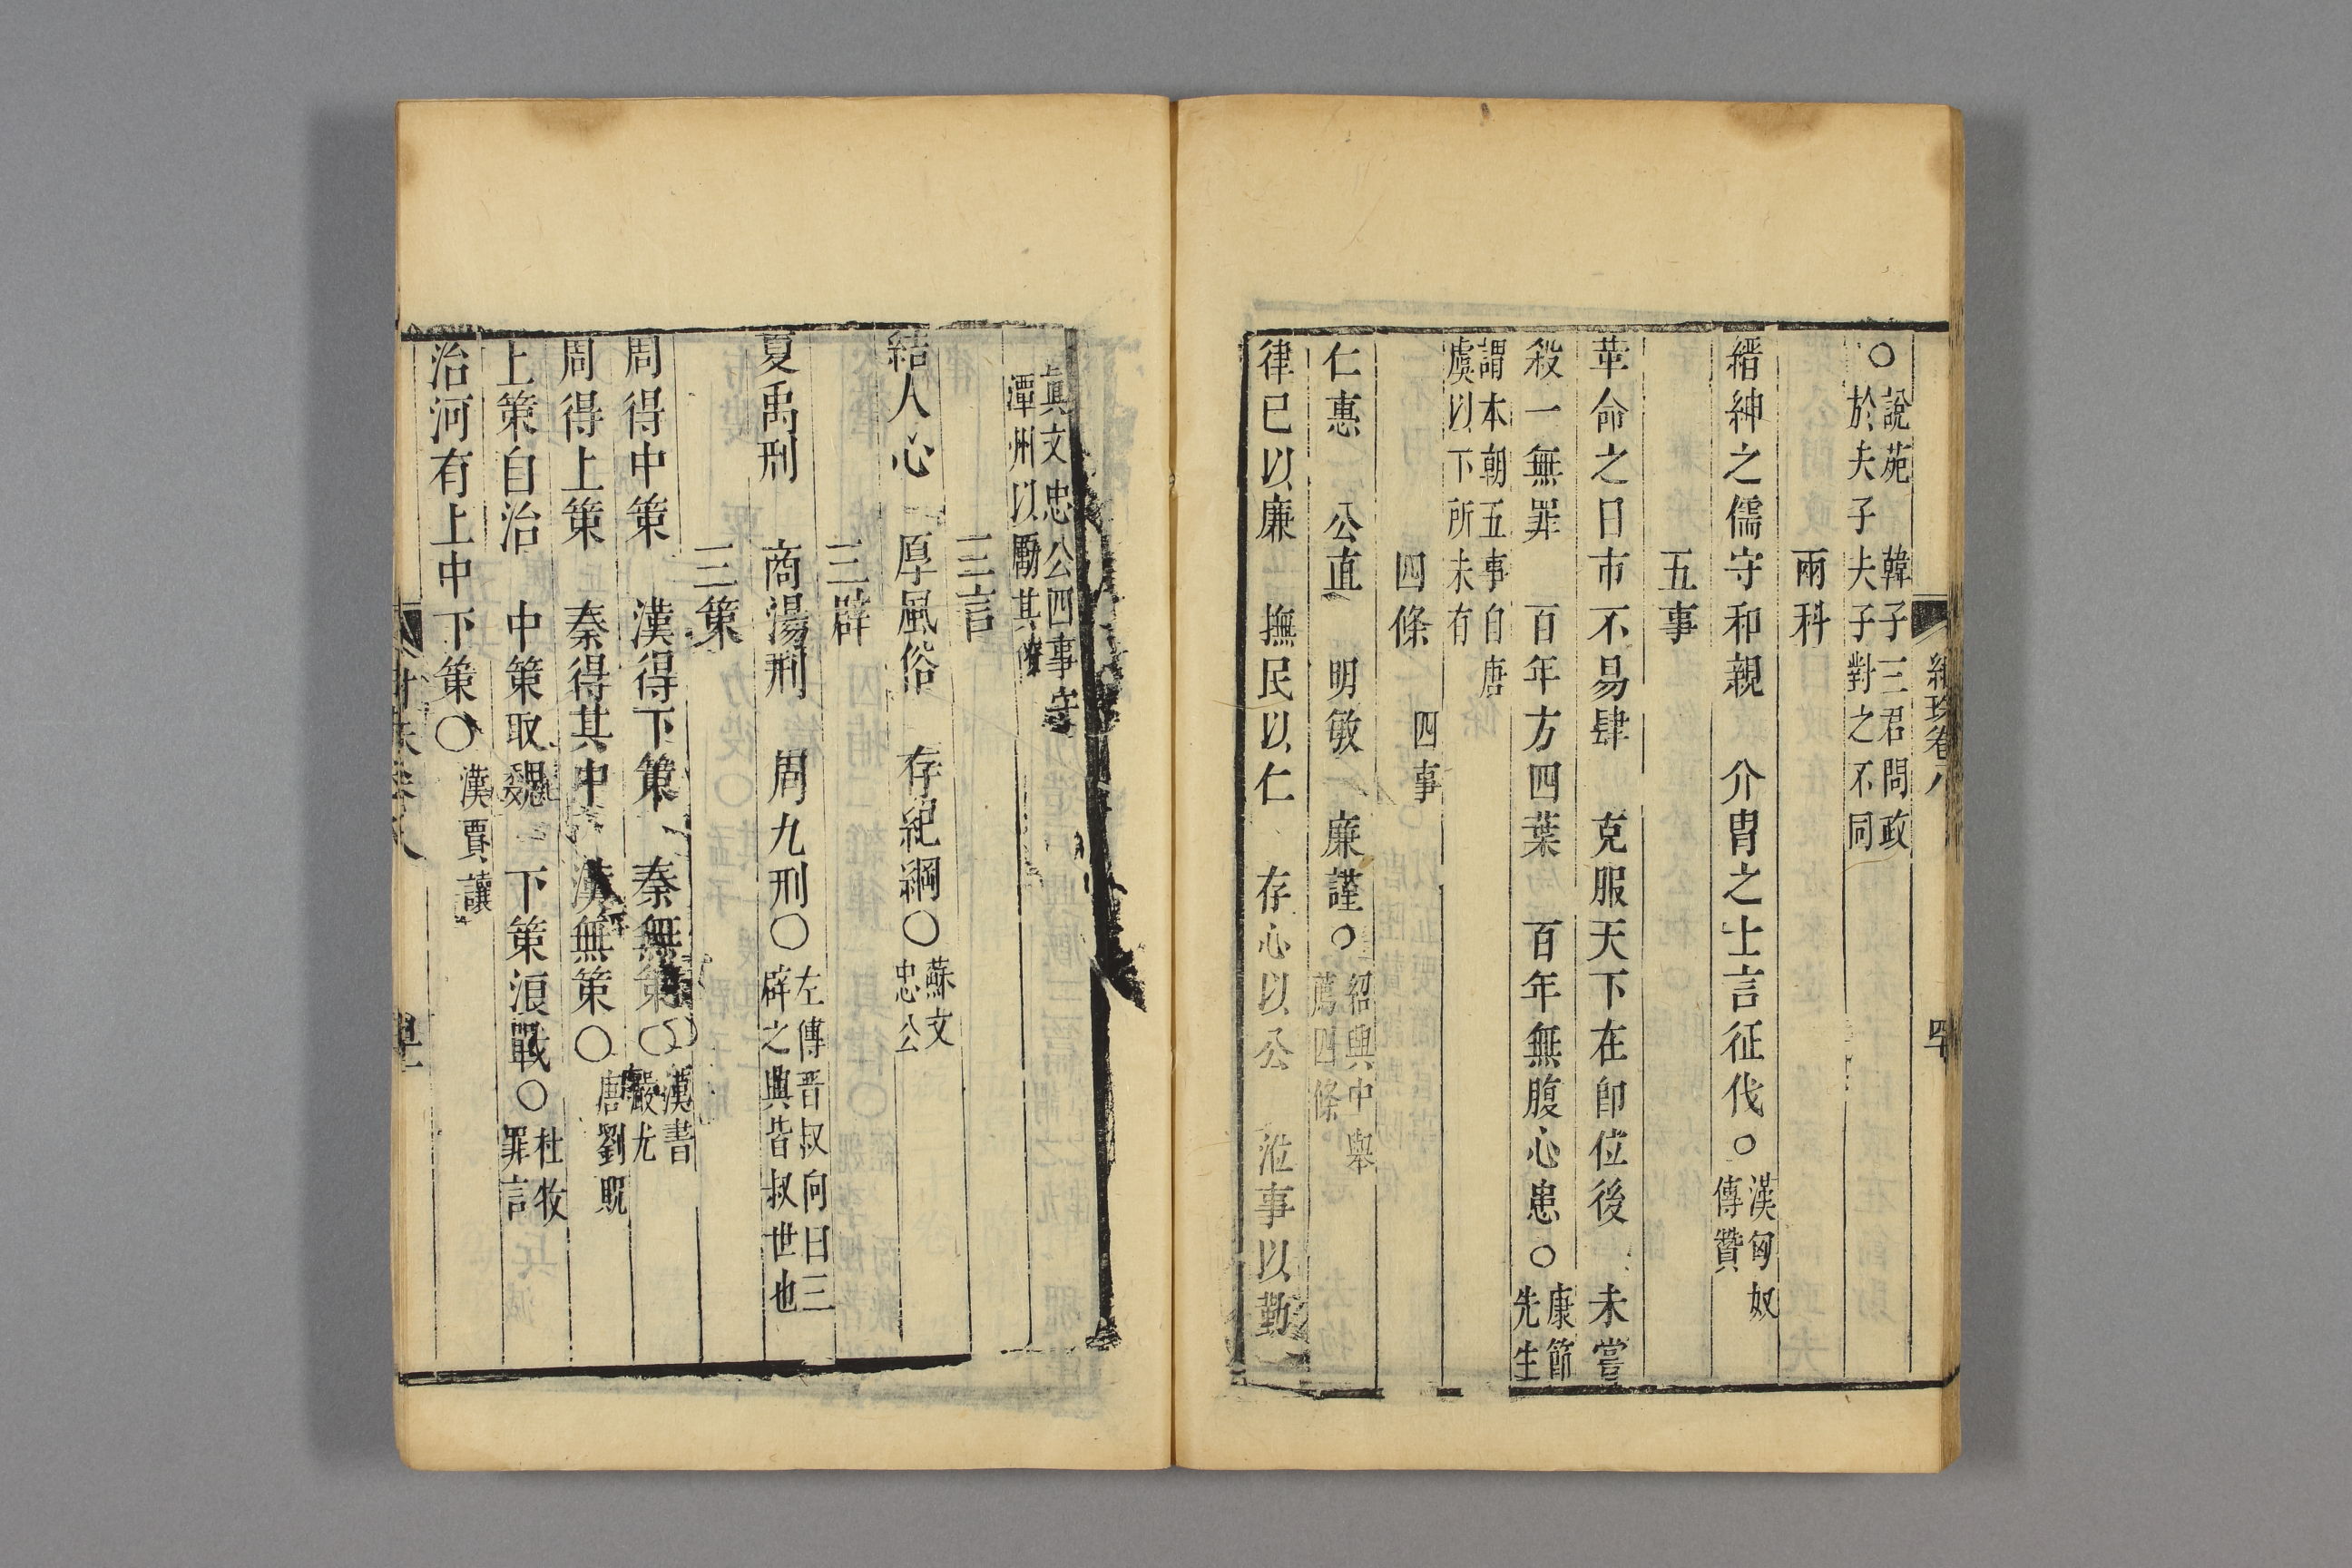 ○說苑　韓子三君問政
於夫子夫子對之不同
兩科
縉紳之儒守和親　介胄之士言征伐○漢匈奴
傳贊
五事
革命之日市不易肆　克服天下在卽位後　未嘗
殺一無罪　百年方四葉　百年無腹心患○康節
先生
謂本朝五事自唐
虞以下所未有
四條　四事
仁惠　公直　明敏　廉謹○紹興中舉
薦四條
律已以廉　撫民以仁　存心以公　涖事以勤
眞文忠公四事守
潭州以勵其
三言
結人心　厚風俗　存紀綱○蘇文
忠公
三辟
夏禹刑　商湯刑　周九刑○左傳晋叔向曰三
辟之興皆叔世也
三策
周得中策　漢得下策　秦無策○漢書
嚴尤
周得上策　秦得其中　漢無策○唐劉貺
上策自治　中策取魏　下策浪戰○杜牧
罪言
治河有上中下策○漢賈讓